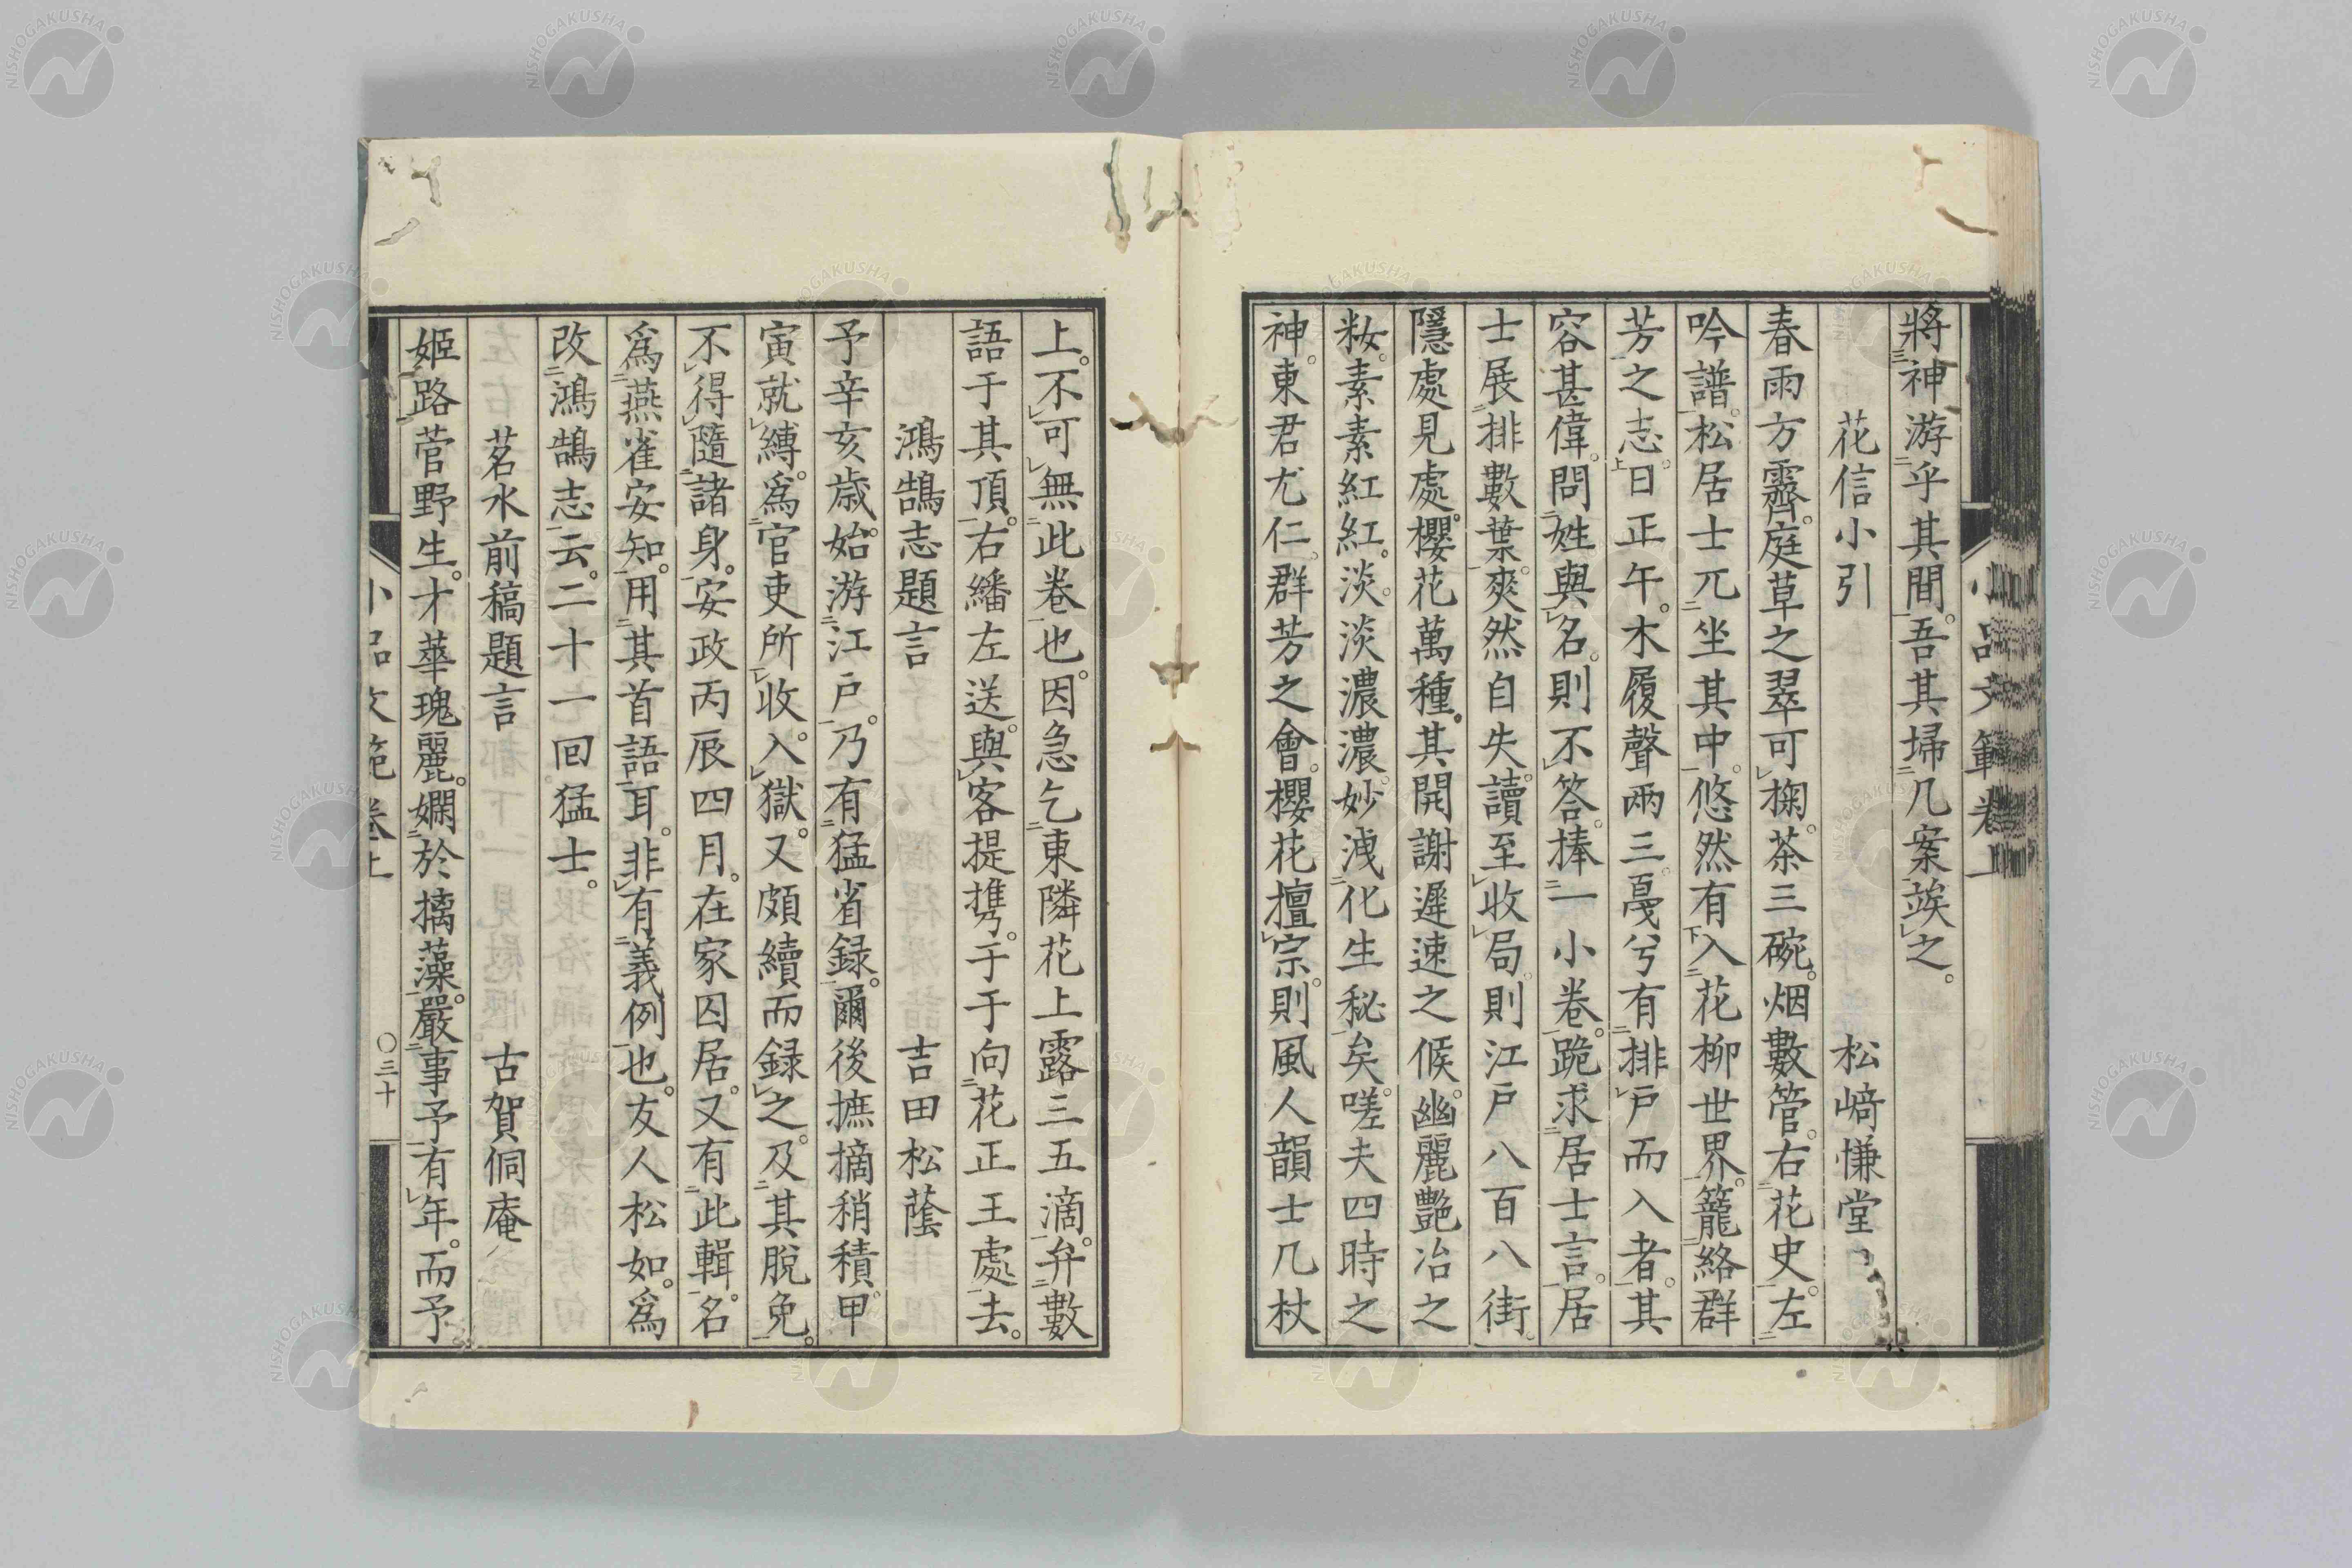 將神游乎其間。吾其埽几案竢之。
花信小引 松﨑慊堂
春雨方霽。庭草之翠可掬。茶三碗。烟數管。右花史。左
吟譜。松居士兀坐其中。悠然有入花柳世界。籠絡群
芳之志。日正午。木履聲兩三。戞兮有排戶而入者。其
容甚偉。問姓與名。則不答。捧一小卷。跪求居士言。居
士展排數葉。爽然自失。讀至收局。則江戶八百八街。
隱處見處。櫻花萬種。其開謝遲速之候。幽麗艷冶之
粧。素素紅紅。淡淡濃濃。妙洩化生秘矣。嗟夫四時之
神。東君尤仁。群芳之會。櫻花擅宗。則風人韻士几杖
上。不可無此卷也。因急乞東隣花上露三五滴。弁數
語于其頂。右繙左送。與客提携。于于向花正王處去。
鴻鵠志題言 吉田松蔭
予辛亥歲。始游江戶。乃有猛省録。爾後摭摘稍積。甲
寅就縛。爲官吏所收。入獄。又頗續而録之。及其脫免。
不得隨諸身。安政丙辰四月。在家囚居。又有此輯。名
爲燕雀安知。用其首語耳。非有義例也。友人松如。爲
改鴻鵠志云。二十一回猛士。
茗水前稿題言 古賀侗庵
姬路菅野生。才華瑰麗。嫻於摛藻。嚴事予有年。而予。
小品文範卷上 〇三十
小品文範卷上
NISHOGAKUSHA